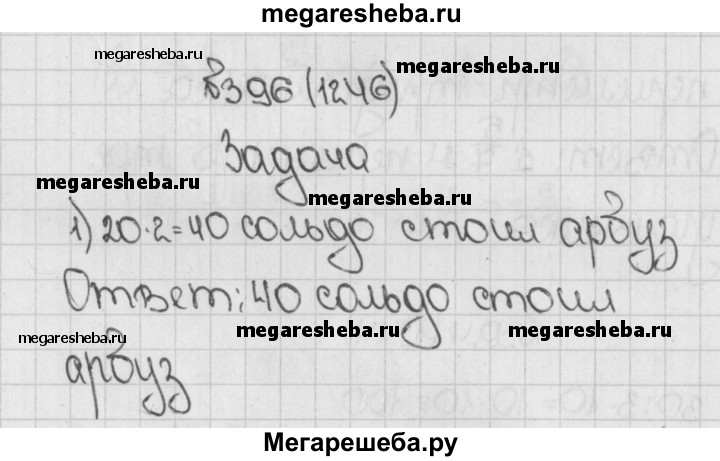 megaresheba.ru
megaresheba.ru
№396 (1246)
megaresheba.ru
Задача
megaresheba.ru
megaresheba.ru
1) 20·2=40 сольдо стоил арбуз
Ответ: 40 сольдо стоил
megaresheba.ru
megaresheba.ru
megaresheba.ru
арбуз
Мегарешеба.ру